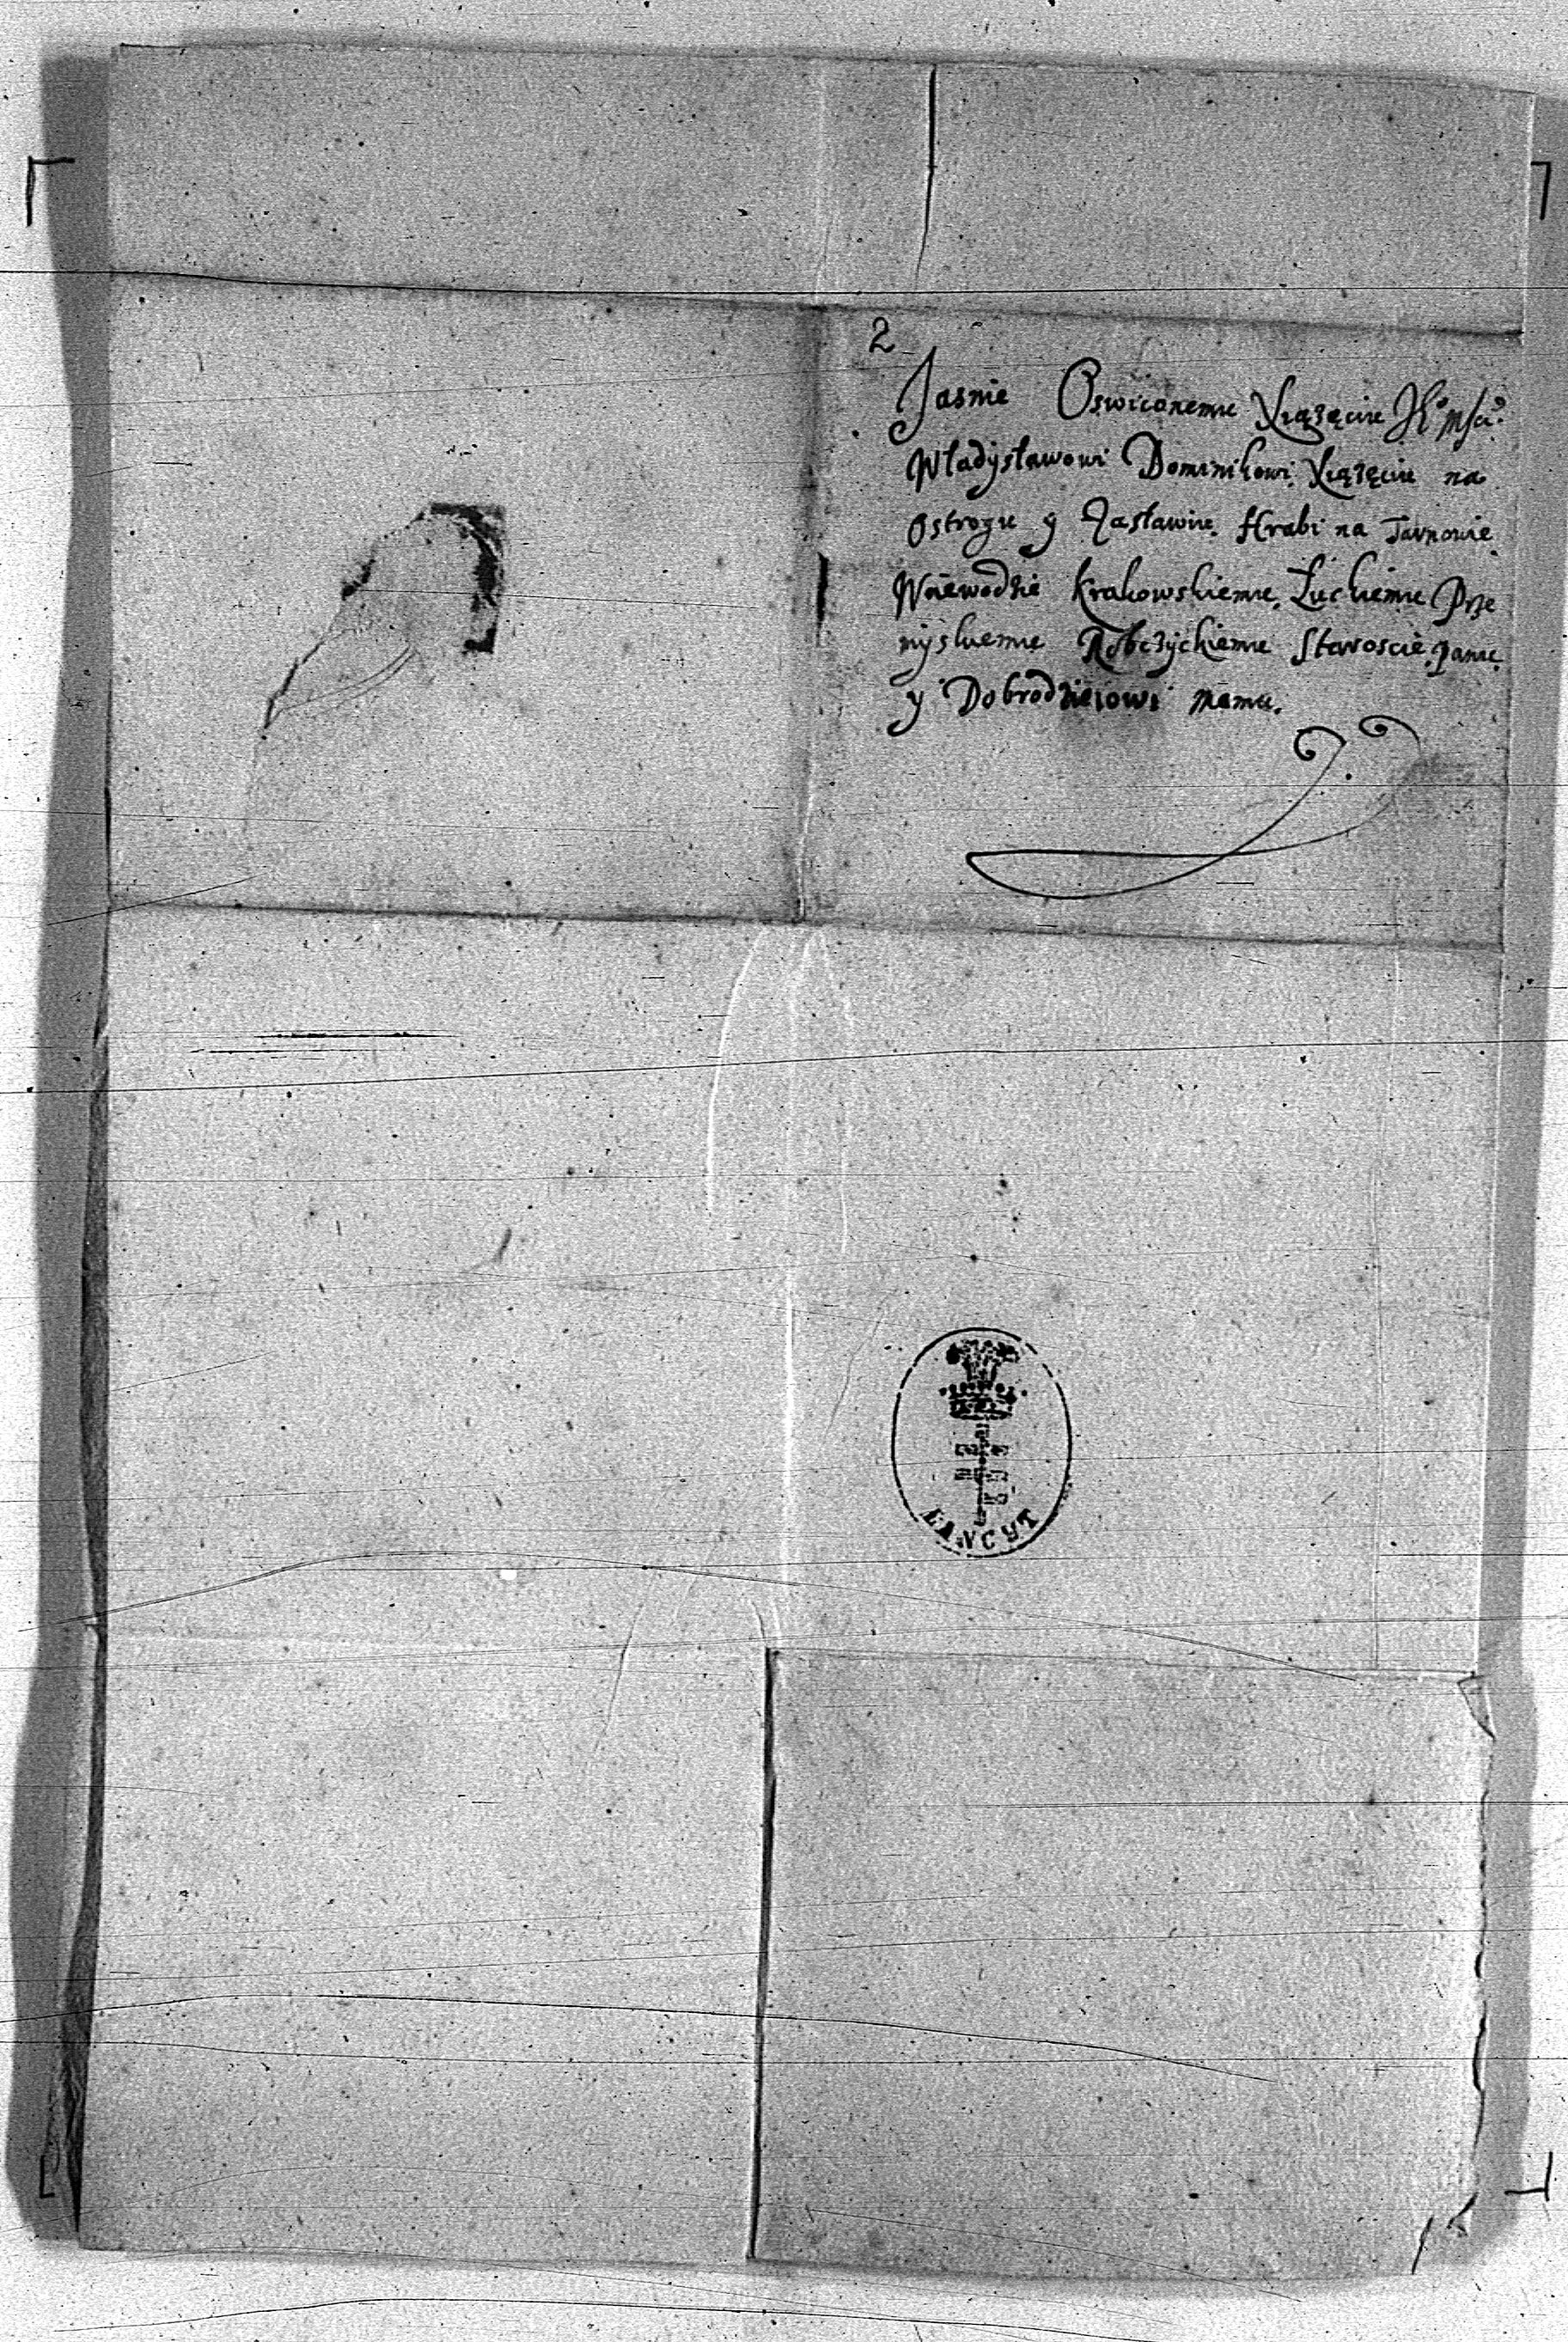 2
Jasnie Oswiconemu Xiązęciu
Władysławowi Dominikowi Xiązęciu na
Ostrogu y Zasławiu. Hrabi na Tarnowie.
Woiewodzie Krakowskiemu, Łuckiemu Prze
myskiemu Robczyckiemu Staroscie. Panu.
y Dobrodzieiowi memu.
ŁAŃCUT